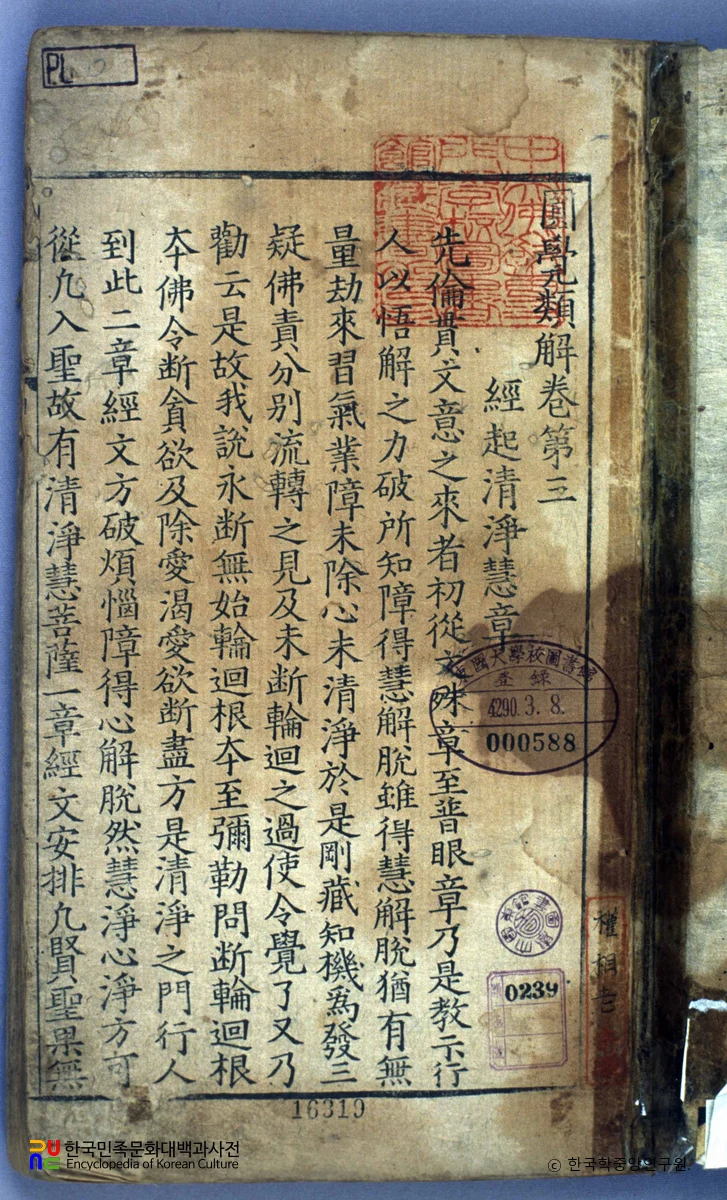 圓覺類解卷第三
經起淸淨慧章
先倫貫文意之來者初從文殊章至普眼章乃是教示行
人以悟解之力破所知障得慧解脫雖得慧解脫猶有無
量劫來習氣業障未除心未清淨於是剛藏知機爲發三
疑佛責分別流轉之見及未断輪迴之過使令覺了又乃
勸云是故我說永断無始輪迴根夲至彌勒問断輪迴根
夲佛令断貪欲及除愛渴愛欲断盡方是清淨之門行人
到此二章經文方破煩惱障得心解脫然慧淨心淨方可
從凢入聖故有清淨慧菩薩一章經文安排凢賢聖果無
東國大學校圖書館
登錄
4290. 3. 8.
000588
0239
權相老
16319
한국민족문화대백과사전
Encyclopedia of Korean Culture
© 한국학중앙연구원